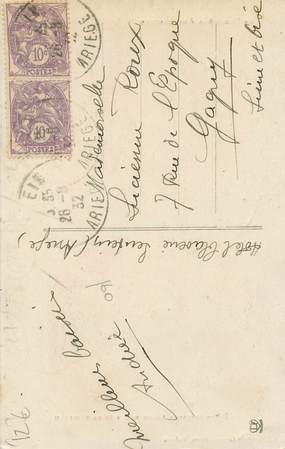 10c
POSTES
10c
POSTES
ARIEGE
26
32
ARIEGE
Mademoiselle
Lucienne Roux
7 Rue de l'Epoque
Gagny
Seine et Oise
Hotel
Sentein (Ariège)
Meilleurs baisers
André